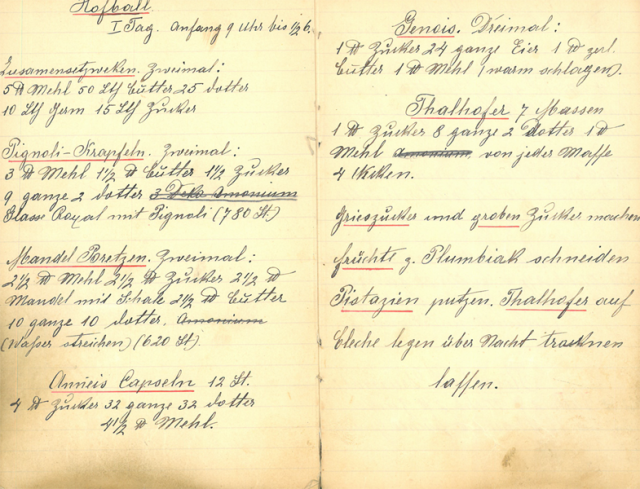 Hofball
I Tag. Anfang 9 Uhr bis 1/2 6.
Zusamensetzweken. Zweimal:
5 ℔ Mehl 50 Lth Butter 25 dotter
10 Lth Germ 15 Lth Zucker
Pignoli-Krapfeln. Zweimal:
3 ℔ Mehl 1 1/2 ℔ Butter 1 1/2 Zucker
9 ganze 2 dotter 3 Deka Amonium
Glasse Royal mit Pignoli (780 St.)
Mandel Pretzen. Zweimal:
2 1/2 ℔ Mehl 2 1/2 ℔ Zucker 2 1/2 ℔
Mandel mit Schale 2 1/2 ℔ Butter
10 ganze 10 dotter. Amonium
(Wasser streichen) (620 St).
Anneis Capseln 12 St.
4 ℔ Zucker 32 ganze 32 dotter
4 1/2 ℔ Mehl.
Genois. Dreimal:
1 ℔ Zucker 24 ganze Eier 1 ℔ zerl.
Butter 1 ℔ Mehl (warm schlagen).
Thalhofer 7 Massen
1 ℔ Zucker 8 ganze 2 dotter 1 ℔
Mehl Amonium von jeder Masse
4
Grieszucker und groben Zucker machen
früchte z. Plumbiak schneiden
Pistazien putzen. Thalhofer auf
Bleche legen über Nacht trocknen
lassen.